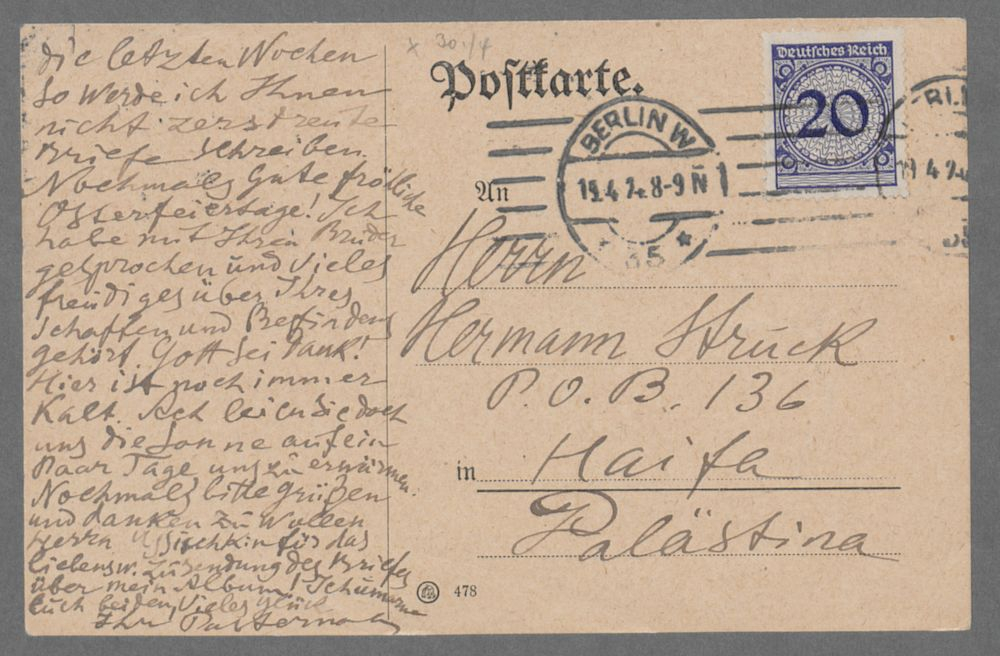 die letzten Wochen
So werde ich Ihnen
nicht zerstreute
Briefe schreiben.
Nochmals gute fröhliche
Osterfeiertage! Ich
habe mit Ihren Bruder
gesprochen und vieles
freudiges über Ihres
Schaffen und Befindens
gehört. Gott sei Dank!
Hier ist noch immer
Kalt. Ach leien Sie doch
uns die Sonne auf ein
Paar Tage uns zu erwärmen.
Nochmals bitte grüßen
und danken zu wollen
Herrn Ussischkin für das
liebensw. Zusendung des Briefes
über mein Album!
Euch beiden vieles Glück
Ihr Pasternak
x 30./4
Postkarte.
Deutsches Reich
20
BERLIN W
19.4.24. 8-9 N
35
BERLIN
19.4.24
35
An
Herrn
Hermann Struck
P.O.B. 136
in Haifa
Palästina
478